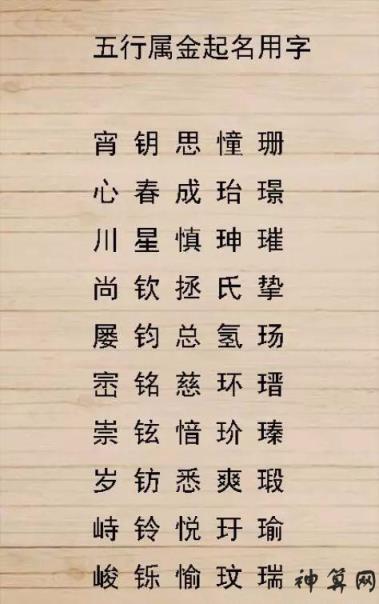 五行属金起名用字
宵 钥 思 憧 珊
心 春 成 珆 璟
川 星 慎 珅 璀
尚 钦 拯 氏 挚
屡 钧 总 氢 玚
密 铭 慈 环 瑨
崇 铉 愔 玠 瑧
岁 钫 悉 爽 瑕
峙 铃 悦 玗 瑜
峻 铄 愉 玟 瑞
神算网